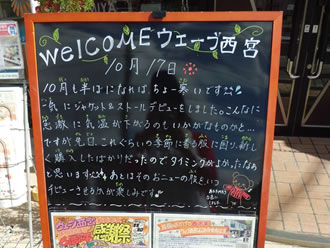 welcOMEウエーブ西宮
10月17日
10月も半ばになればちょー寒いです
一気にジャケット&ストールデビューをしました。こんなに
急激に気温が下がるのもいかがなものかと…
ですが先日、これぐらいの季節に着る服に困り、新し
く購入したばかりだったのでタイミングがよかったなぁ
と思います あとはそのおニューの服をいつ
デビューさせるかが楽しみです
感謝祭